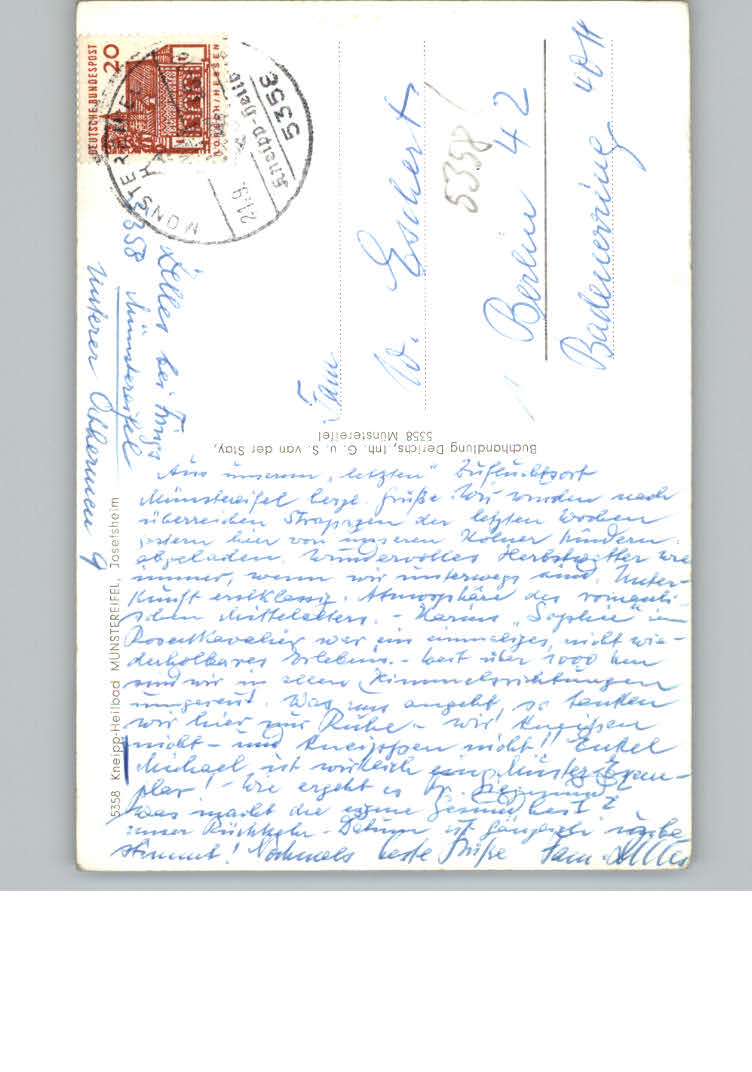 DEUTSCHE BUNDESPOST
20
LORSCH/HESSEN
MÜNSTEREIFEL
21.9.
Kneipp-Heilb
5358
Lilles bei Frings
5358 Münstereifel
Unterer
9
Fam
W. Eschert
5358
1 Berlin 42
Badenerring 40
Buchhandlung Derichs, Inh. G. u. S. van der Stay,
5358 Münstereifel
5358 Kneipp-Heilbad MÜNSTEREIFEL, Josefsheim
Aus unserem „letzten" Zufluchtsort
Münstereifel herzl. Grüße. Wir wurden nach
überreichen Strapazen der letzten Wochen
gestern hier von unseren Kölner Kindern
abgeladen. Wundervolles Herbstwetter wie
immer, wenn wir unterwegs sind. Unter-
kunft erstklassig. Atmosphäre des romanti-
schen Mittelalters. - Karins „Sophie" im
Rosenkavalier war ein einmaliges, nicht wie-
derholbares Erlebnis. - Weit über 1000 km
sind wir in allen Himmelsrichtungen
umgereist. Was uns angeht, so tanken
wir hier nur Ruhe - wir kneippen
nicht - und kneippen nicht!! Enkel
Michael ist wirklich ein Exem-
plar! - Wie ergeht es
Was macht die eigene Gesundheit?
unser Rückkehr-Datum ist gänzlich unbe
stimmt! Nochmals beste Grüße Fam. Lilles